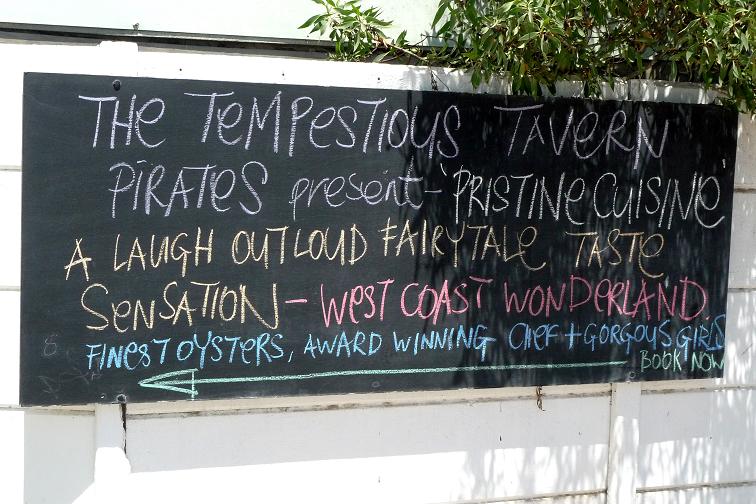 THE TEMPESTIOUS TAVERN
PIRATES present - 'PRISTINE CUISINE'
A LAUGH OUTLOUD FAIRYTALE TASTE
SENSATION - WEST COAST WONDERLAND.
FINEST OYSTERS, AWARD WINNING CHEF + GORGOUS GIRLS
BOOK NOW